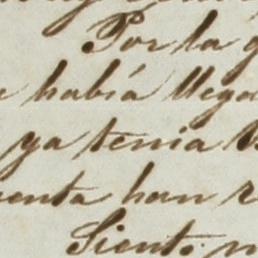 Por la
habia llega
ya tenia
enta han
Siento